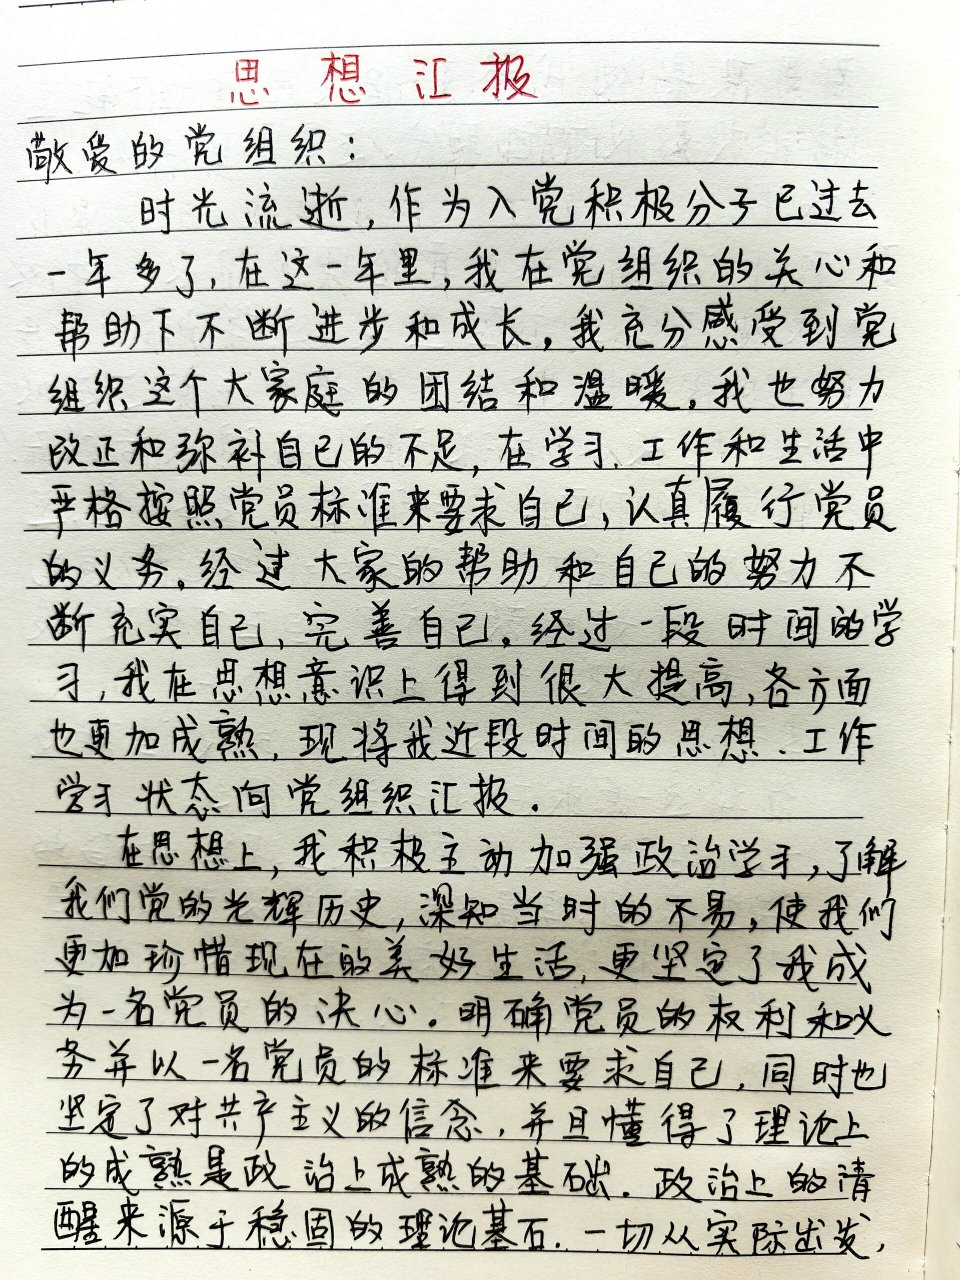 思想汇报
敬爱的党组织：
时光流逝，作为入党积极分子已过去
一年多了，在这一年里，我在党组织的关心和
帮助下不断进步和成长，我充分感受到党
组织这个大家庭的团结和温暖，我也努力
改正和弥补自己的不足，在学习、工作和生活中
严格按照党员标准来要求自己，认真履行党员
的义务。经过大家的帮助和自己的努力不
断充实自己、完善自己。经过一段时间的学
习，我在思想意识上得到很大提高，各方面
也更加成熟，现将我近段时间的思想、工作
学习状态向党组织汇报．
在思想上，我积极主动加强政治学习，了解
我们党的光辉历史，深知当时的不易，使我们
更加珍惜现在的美好生活，更坚定了我成
为一名党员的决心。明确党员的权利和义
务并以一名党员的标准来要求自己，同时也
坚定了对共产主义的信念，并且懂得了理论上
的成熟是政治上成熟的基础．政治上的清
醒来源于稳固的理论基石．一切从实际出发，